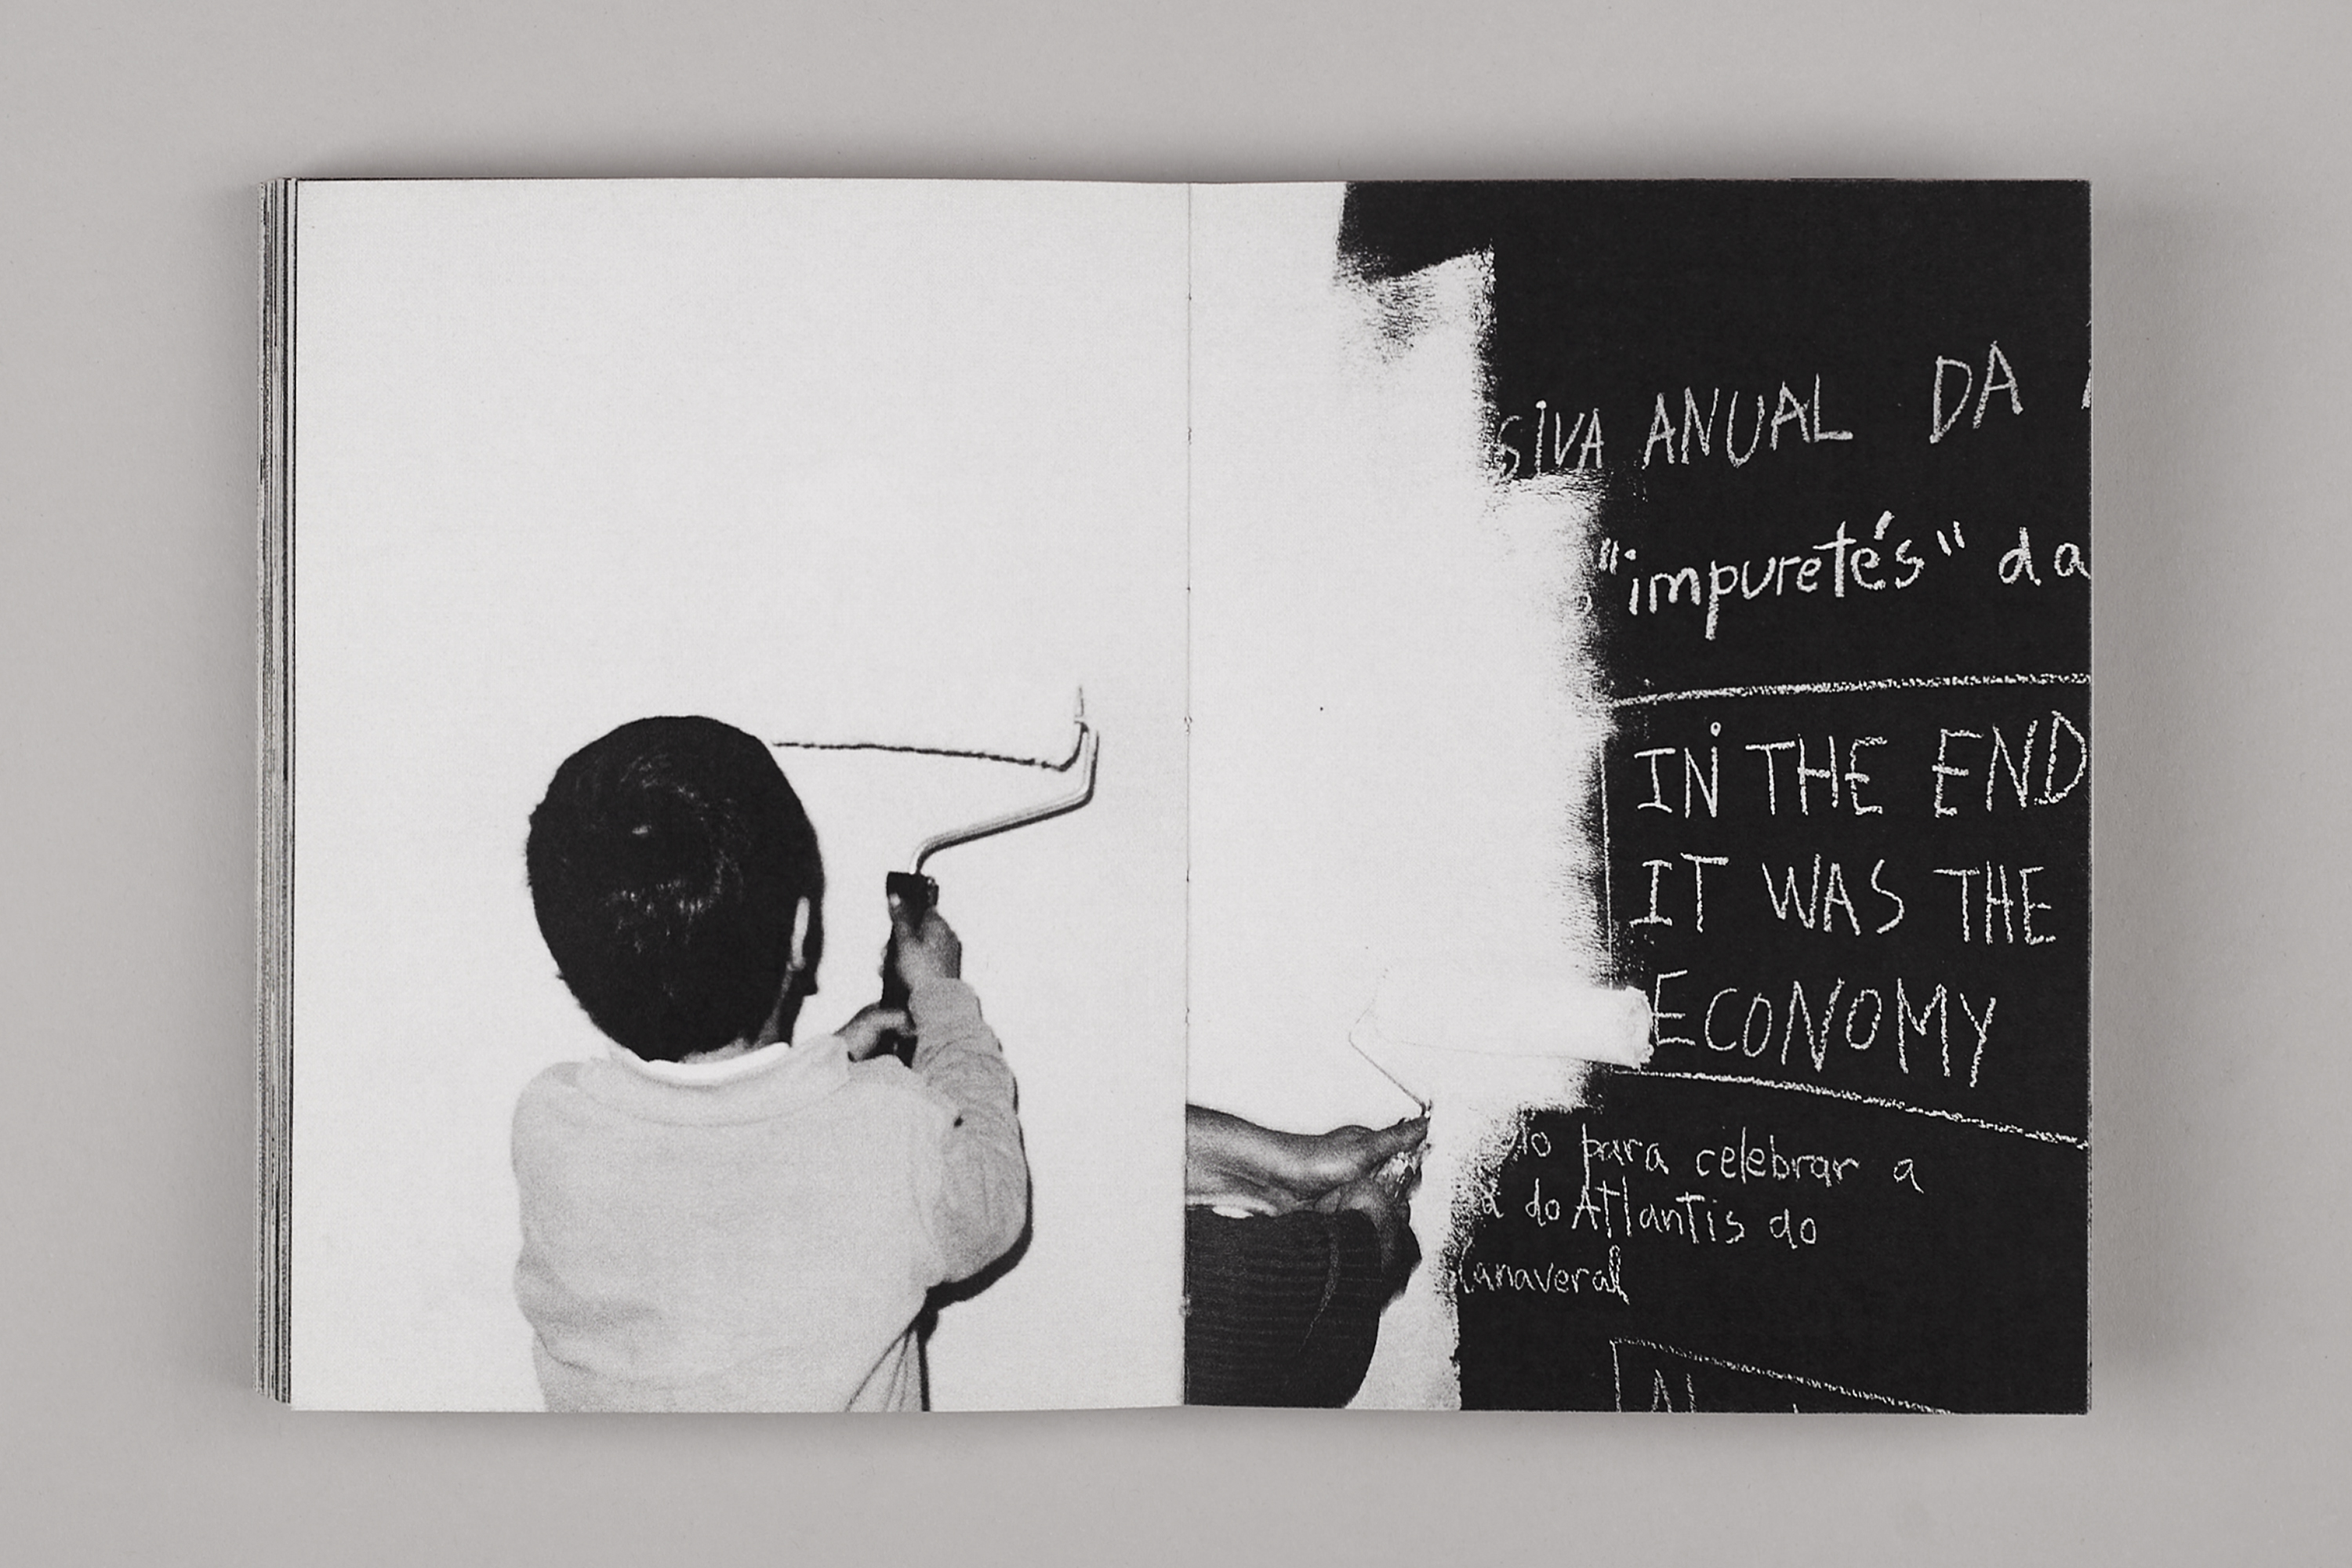 SIVA ANUAL DA
"impuretés" da
IN THE END
IT WAS THE
ECONOMY
para celebrar a
do Atlantis do
Canaveral